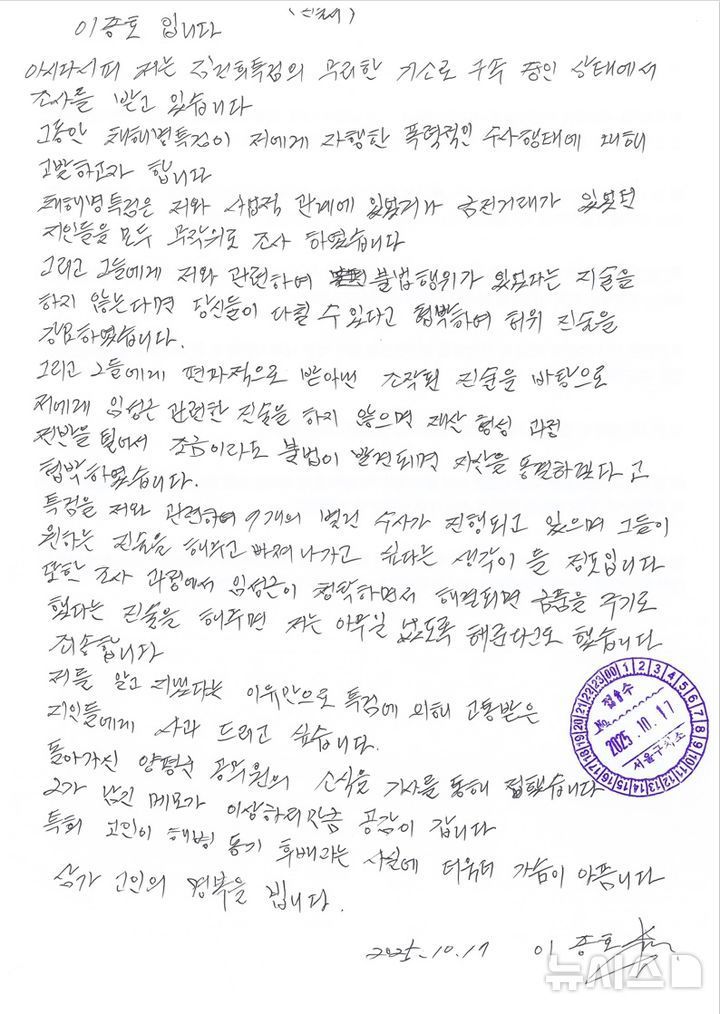 이종호 입니다
아시다시피 저는 김건희특검의 무리한 기소로 구속 중인 상태에서
조사를 받고 있습니다
그동안 채해병특검이 저에게 자행한 폭력적인 수사행태에 대해
고발하고자 합니다
채해병특검은 저와 사업적 관계에 있었거나 금전거래가 있었던
지인들을 모두 무작위로 조사 하였습니다
그리고 그들에게 저와 관련하여 불법행위가 있었다는 진술을
하지 않는다면 당신들이 다칠 수 있다고 협박하여 허위 진술을
강요하였습니다.
그리고 그들에게 편파적으로 받아낸 조작된 진술을 바탕으로
저에게 임성근 관련한 진술을 하지 않으면 재산 형성 과정
전반을 털어서 조금이라도 불법이 발견되면 자산을 동결하겠다고
협박하였습니다.
특검을 저와 관련하여 9개의 별건 수사가 진행되고 있으며 그들이
원하는 진술을 해주고 빠져나가고 싶다는 생각이 들 정도입니다
또한 조사 과정에서 임성근이 청탁하면서 해결되면 금품을 주기로
했다는 진술을 해주면 저는 아무일 없도록 해준다고도 했습니다
죄송합니다
저를 알고 지냈다는 이유만으로 특검에 의해 고통받은
지인들에게 사과 드리고 싶습니다.
돌아가신 양평군 공무원의 소식을 기사를 통해 접했습니다
그가 남긴 메모가 이상하리만큼 공감이 갑니다
특히 고인이 해병 동기 후배라는 사실에 더욱더 가슴이 아픕니다
삼가 고인의 명복을 빕니다.
2025.10.17 이종호
접수
No.
2025.10.17
서울구치소
00 1 2 3 4 5 6 7 8 9 10 11 12 13 14 15 16 17 18 19 20 21 22 23
뉴시스